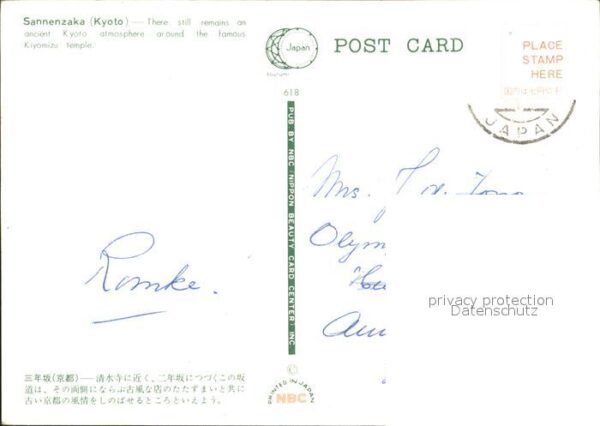 Sannenzaka (Kyoto) — There still remains an
ancient Kyoto atmosphere around the famous
Kiyomizu temple.
Japan
POST CARD
PLACE
STAMP
HERE
JAPAN
618
PUB. BY NBC (NIPPON BEAUTY CARD CENTER) INC
Mrs.
Olym
Romke.
privacy protection
Datenschutz
三年坂(京都)——清水寺に近く、二年坂につづくこの坂
道は、その両側にならぶ古風な店のたたずまいと共に
古い京都の風情をしのばせるところといえよう。
©
PRINTED IN JAPAN
NBC